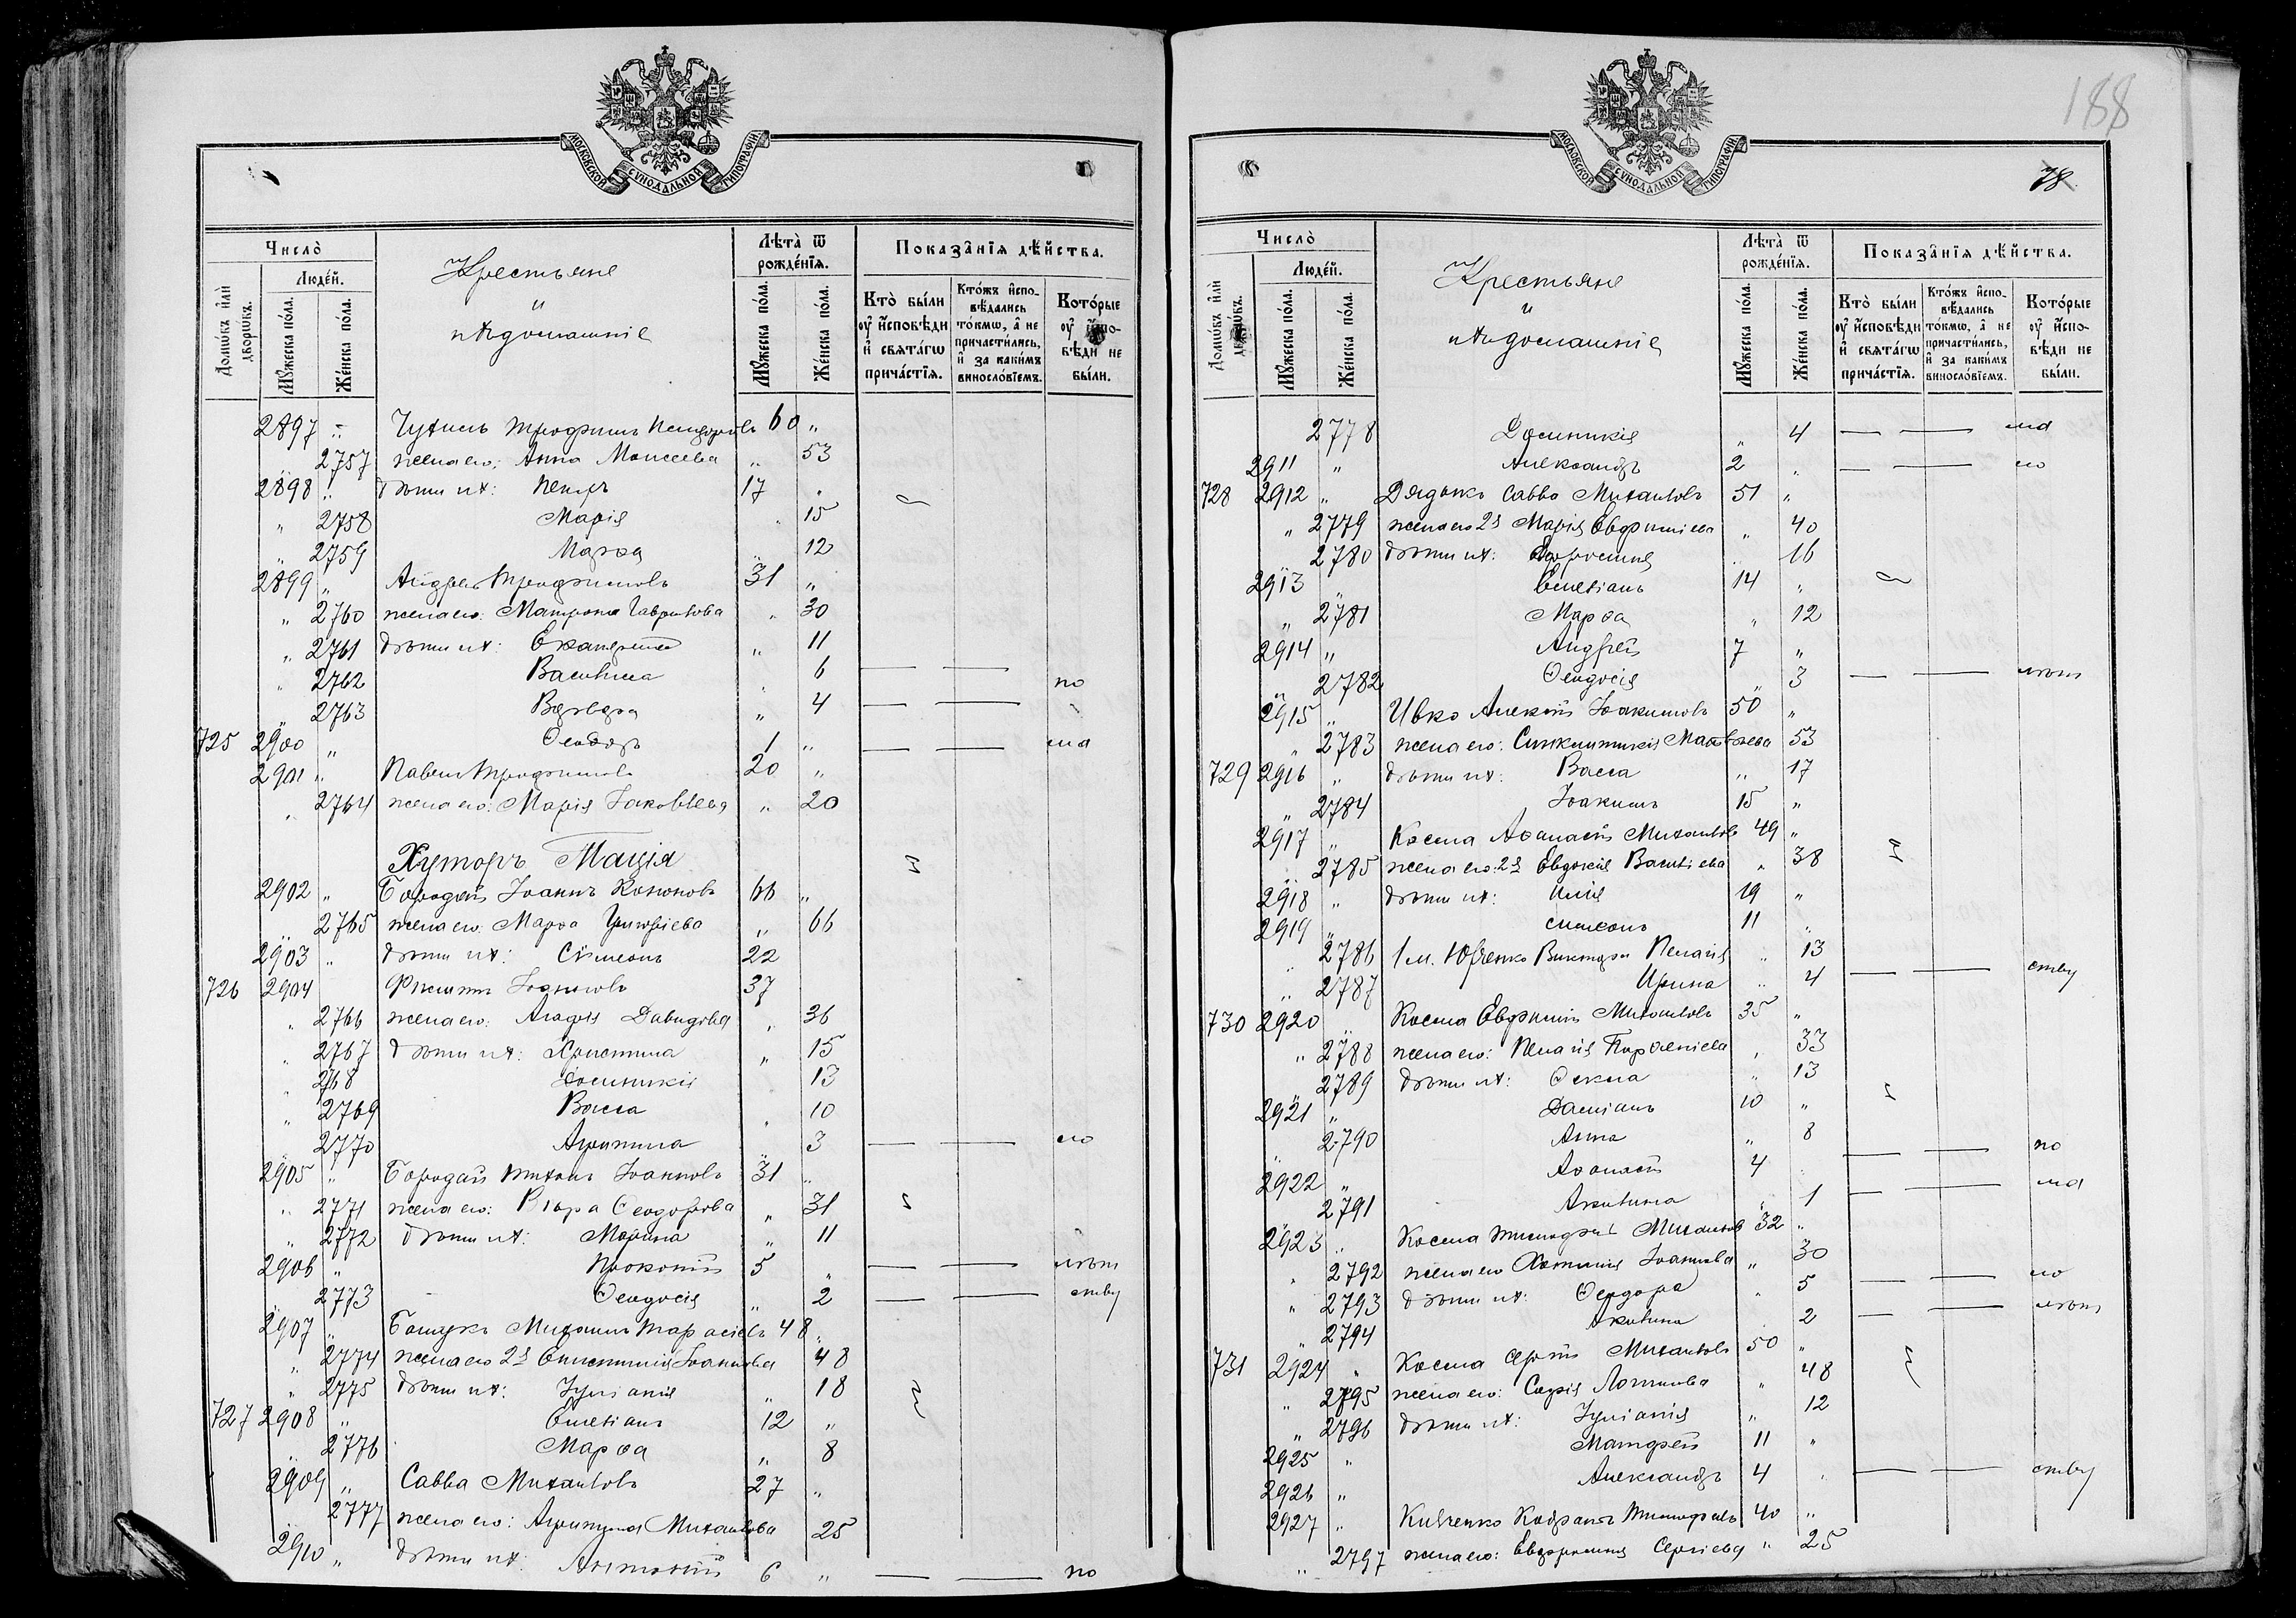 МОСКОВСКОЙ СѴНОДАЛЬНОЙ ТИПОГРАФІИ.
Число̀
Домѡ́въ и҆лѝ дворѡ́въ.
Люде́й.
Мꙋ́жеска по́ла.
Же́нска по́ла.
Крестьяне
и
ихъ домашніе
Лѣта̀ ѿ рожде́нїѧ.
Мꙋ́жеска по́ла.
Же́нска по́ла.
Показа̑нїѧ дѣ́йства.
Кто̀ бы́ли
ᲂу҆ и҆сповѣ́ди
и҆ свѧта́гѡ
прича́стїѧ.
Кто́жъ и҆спо-
вѣ́дались
то́кмѡ, а҆ не
причасти́лись,
и҆ за каки́мъ
винословїемъ.
Кото́рые
ᲂу҆ и҆спо-
вѣ́ди не
бы́ли.
2897 " Трофимъ 60 "
" 2757 жена его: Анна Моисеева " 53
2898 " дѣти ихъ: Петръ 17 "
" 2758 Марія " 15
" 2759 Марѳа " 12
2899 " Андрей Трофимовъ 31 "
" 2760 жена его: Матрона Гавриилова " 30
" 2761 дѣти ихъ: Екатерина " 11
" 2762 Василисса " 6 — — по
" 2763 Варвара " 4 — —
725 2900 " Ѳеодоръ 1 " — — ма
2901 " Павелъ Трофимовъ 20 "
" 2764 жена его: Марія Іаковлева " 20
Хуторъ Мація
2902 " Бородай Іоаннъ Кононовъ 66 "
" 2765 жена его: Марѳа Григоріева " 66
2903 " дѣти ихъ: Сѵмеонъ 22
726 2904 Филиппъ Іоанновъ 37
" 2766 жена его: Агафія Давидова " 36
" 2767 дѣти ихъ: Христина " 15
" 2768 Домникія 13
" 2769 Васса " 10
" 2770 Агрипина 3 — — ло
2905 " Бородай Тихонъ Іоанновъ 31 "
" 2771 жена его: Вѣра Ѳеодорова " 31
" 2772 дѣти ихъ: Марина " 11
2906 " Прокопій 5 " — — лѣт
2773 Ѳеодосія " 2 — — ству
2907 " Михаилъ Тарасіевъ 48 "
" 2774 жена его 2я Епистимія Іоаннова 48
" 2775 дѣти ихъ: Іуліанія " 18
727 2908 " Емеліанъ 12 "
" 2776 Марѳа " 8
2909 " Савва Михаиловъ 27 "
2777 жена его: Агрипина Михаилова 25
2910 " дѣти ихъ: Анатолій 6 " — — по
188
78.
МОСКОВСКОЙ СѴНОДАЛЬНОЙ ТИПОГРАФІИ.
Число̀
Домѡ́въ и҆лѝ дворѡ́въ.
Люде́й.
Мꙋ́жеска по́ла.
Же́нска по́ла.
Крестьяне
и
ихъ домашніе
Лѣта̀ ѿ рожде́нїѧ.
Мꙋ́жеска по́ла.
Же́нска по́ла.
Показа̑нїѧ дѣ́йства.
Кто̀ бы́ли
ᲂу҆ и҆сповѣ́ди
и҆ свѧта́гѡ
прича́стїѧ.
Кто́жъ и҆спо-
вѣ́дались
то́кмѡ, а҆ не
причасти́лись,
и҆ за каки́мъ
винословїемъ.
Кото́рые
ᲂу҆ и҆спо-
вѣ́ди не
бы́ли.
2778 Домникія " 4 — — ма
2911 " Александръ 2 " — — ло
728 2912 " Дядокъ Савва Михаиловъ 51 "
" 2779 жена его 2я Марія Евфиміева " 40
2780 дѣти ихъ: 16
2913 " Емеліанъ 14 "
" 2781 Марѳа " 12
2914 " Андрей 7 "
2782 Ѳеодосія " 3 — — лѣт
2915 " Ивко Алексѣй Іоакимовъ 50 "
" 2783 жена его: Синклитикія Матѳѣева 53
729 2916 " дѣти ихъ: Васса " 17
" 2784 Іоакимъ 15 "
2917 " Косма Аѳанасій Михаиловъ 49 "
2785 жена его: 2я Евдокія Василіева " 38
2918 " дѣти ихъ: Илія 19 "
2919 " Симеонъ 11
" 2786 1 м. Юрченко Виктора Пелагія " 13
" 2787 Ирина " 4 — — ству
730 2920 " Косма Евфимій Михаиловъ 35 "
" 2788 жена его: Пелагія Парѳеніева " 33
2789 дѣти ихъ: Ѳекла " 13
2921 " Даміанъ 10 "
2790 Анна " 8
2922 " Аѳанасій 4 — — по
2791 Акилина " 1 — — ма
2923 " Косма Тимофей Михаиловъ 32 "
" 2792 жена его Хотинія Іоаннова " 30
" 2793 дѣти ихъ: Ѳеодора " 5 — — ло
" 2794 Акилина 2 — — лѣт
731 2924 " Косма Сергій Михаиловъ 50 "
" 2795 жена его: Софія Логинова " 48
" 2796 дѣти ихъ: Іуліанія " 12
2925 " Матфей 11 "
2926 " Александръ 4 " — — ству
2927 " Кодратъ Тимофеевъ 40 "
" 2797 жена его: Евфросинія Сергіева " 25